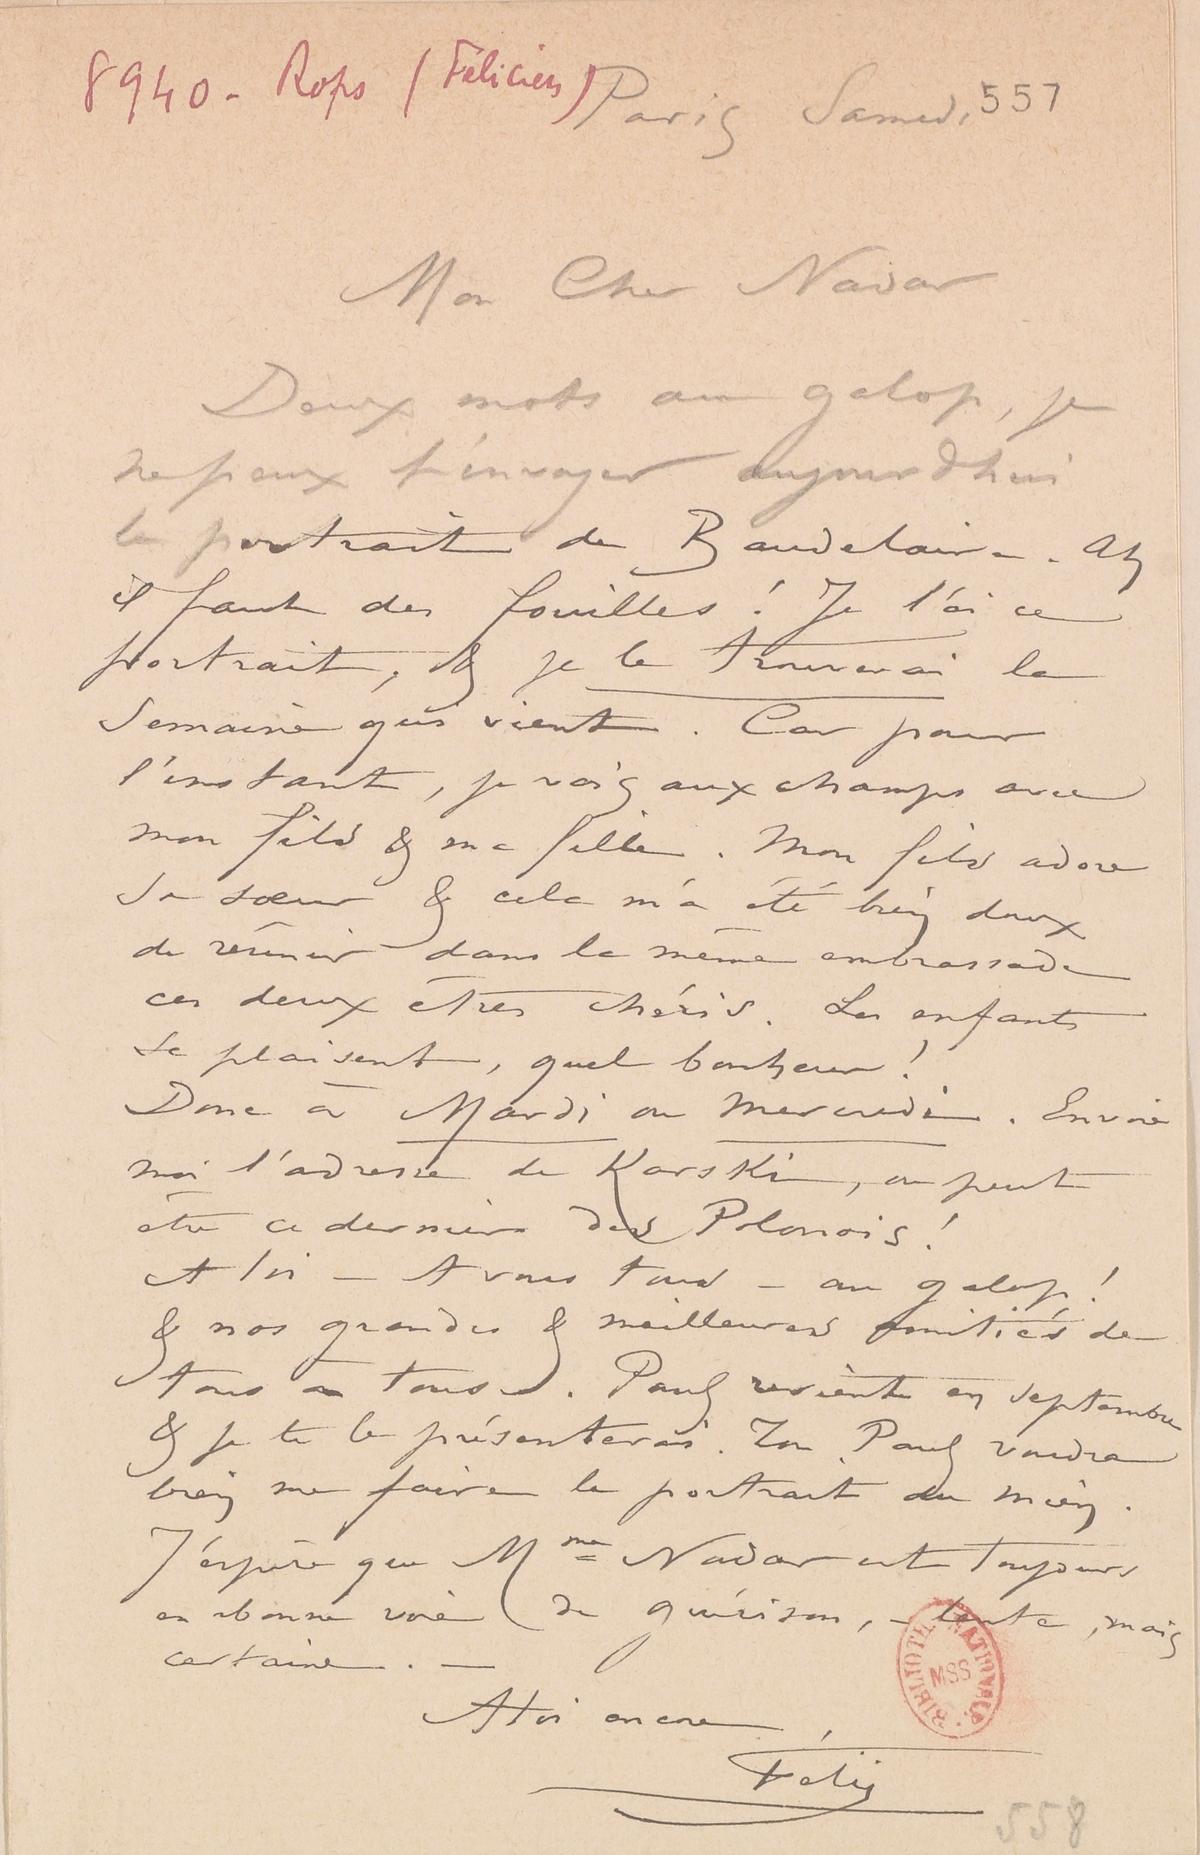 8940 - Rops (Félicien)
Paris Samedi 557
Mon Cher Nadar
Deux mots au galop, je
ne peux t'envoyer aujourd'hui
le portrait de Baudelaire. Ah
il faut des fouilles ! Je l'ai ce
portrait, & je le trouverai la
semaine qui vient. Car pour
l'instant, je vais aux champs avec
mon fils & ma fille. Mon fils adore
sa sœur & cela m'a été bien doux
de réunir dans la même embrassade
ces deux êtres chéris. Les enfants
se plaisent, quel bonheur !
Donc à Mardi ou Mercredi. Envoie
moi l'adresse de Karski, ou peut
être ce dernier des Polonais !
A toi – A vous tous – au galop !
& nos grandes & meilleures amitiés de
tous à tous. Paul revient en septembre
& je te le présenterai. Ton Paul voudra
bien me faire le portrait du mien.
J'espère que Mme Nadar est toujours
en bonne voie de guérison, – lente, mais
certaine. –
A toi encore,
Fély
BIBLIOTHE. NATIONALE
MSS
558